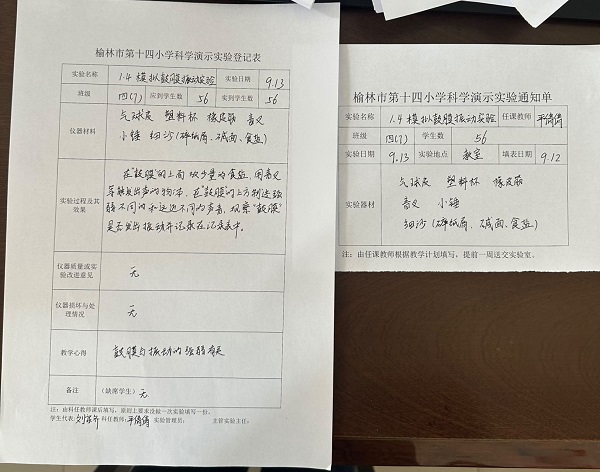 榆林市第十四小学科学演示实验登记表
实验名称 1.4 模拟鼓膜振动实验 实验日期 9.13
班级 四(7) 应到学生数 56 实到学生数 56
仪器材料 气球皮 塑料杯 橡皮筋 音叉
小锤 细沙(碎纸屑、碱面、食盐)
在"鼓膜"的上面放少量的食盐,用音叉
等敲发出声的物体,在"鼓膜"的上方制造强
实验过程及其效果
弱不同的和远近不同的声音,观察"鼓膜"
是否发出振动并记录在记录表中。
仪器质量或实验改进意见 无
仪器损坏与处理情况 无
教学心得 鼓膜与振动的强弱有关
备注 (缺席学生) 无
注:由科任教师课后填写,原则上要求没做一次实验填写一份。
学生代表: 科任教师: 平倩倩 实验管理员: 主管实验主任:
榆林市第十四小学科学演示实验通知单
实验名称 1.4 模拟鼓膜振动实验 任课教师 平倩倩
班级 四(7) 学生数 56
实验日期 9.13 实验地点 教室 填表日期 9.12
气球皮 塑料杯 橡皮筋
实验器材 音叉 小锤
细沙(碎纸屑、碱面、食盐)
注:由任课教师根据教学计划填写,提前一周送交实验室。